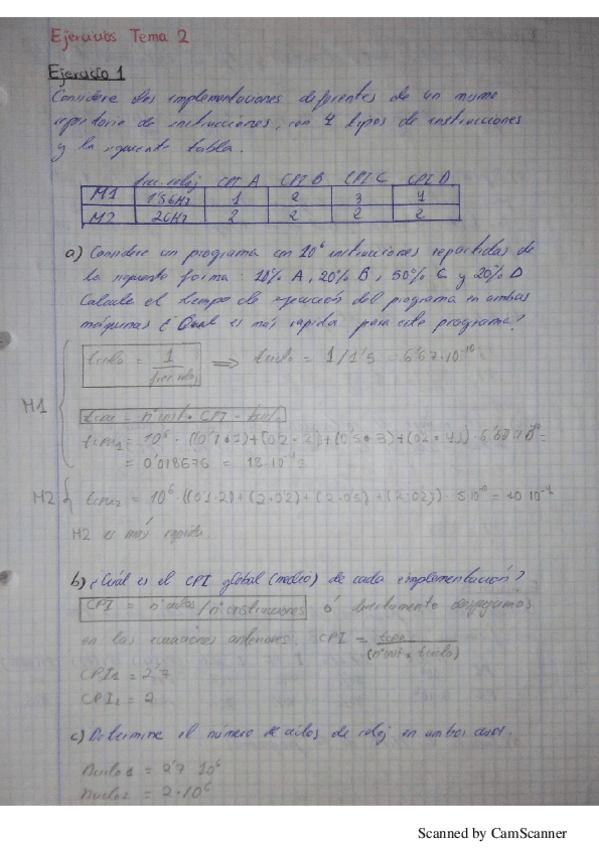 Ejercicios Tema 2
Ejercicio 1
Considere dos implementaciones diferentes de un mismo
repertorio de instrucciones, con 4 tipos de instrucciones
y la siguiente tabla.
frec.reloj CPI A CPI B CPI C CPI D
M1 1'5GHz 1 2 3 4
M2 2GHz 2 2 2 2
a) Considere un programa con 10⁶ instrucciones repartidas de
la siguiente forma: 10% A, 20% B, 50% C y 20% D
Calcule el tiempo de ejecución del programa en ambas
máquinas ¿Qual es más rápida para este programa?
M1
tciclo = 1 / frec.reloj ⟹ tciclo = 1/1'5 = 6'67·10⁻¹⁰
tcpu = nºinst · CPI · tciclo
tcpu₁ = 10⁶ · ((0'1·1)+(0'2·2)+(0'5·3)+(0'2·4)) · 6'67·10⁻¹⁰ =
= 0'018676 = 18·10⁻⁴
M2 tcpu₂ = 10⁶ · ((0'1·2)+(2·0'2)+(2·0'5)+(2·0'2)) · 5·10⁻¹⁰ = 10·10⁻⁴
M2 es más rápida
b) ¿Cuál es el CPI global (medio) de cada implementación?
CPI = nºciclos/nºinstrucciones ó directamente despejamos
en las ecuaciones anteriores. CPI = tcpu / (nºinst × tciclo)
CPI₁ = 2'7
CPI₂ = 2
c) Determine el número de ciclos de reloj en ambos casos.
Nciclo1 = 2'7 · 10⁶
Nciclo2 = 2·10⁶
Scanned by CamScanner